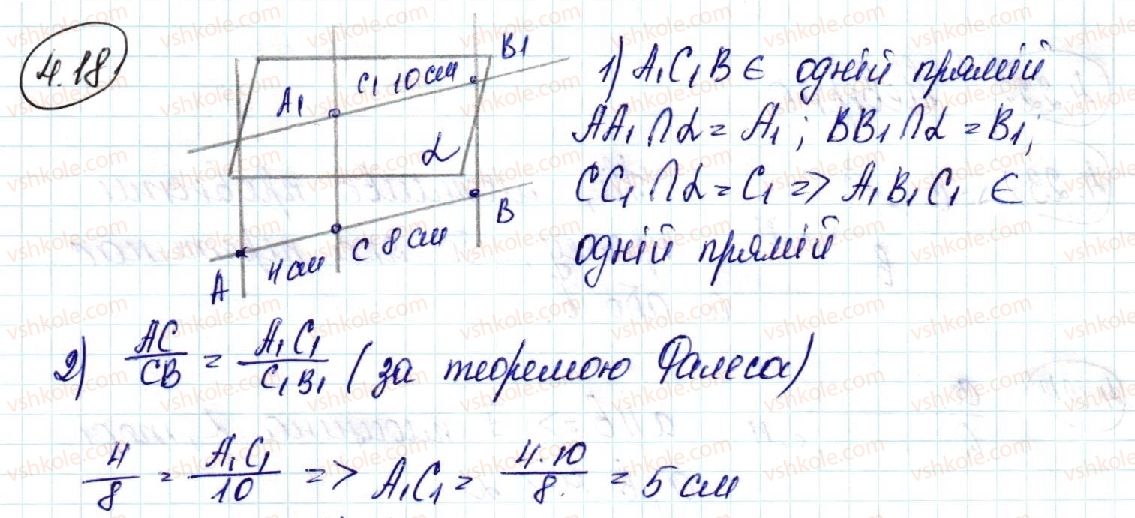 4.18
B1
C1 10 см
A1
α
B
C 8 см
4 см
A
1) A₁C₁B Є одній прямій
AA₁ ∩ α = A₁; BB₁ ∩ α = B₁;
CC₁ ∩ α = C₁ => A₁B₁C₁ Є
одній прямій
2) AC/CB = A₁C₁/C₁B₁ (за теоремою Фалеса)
4/8 = A₁C₁/10 => A₁C₁ = 4·10/8 = 5 см